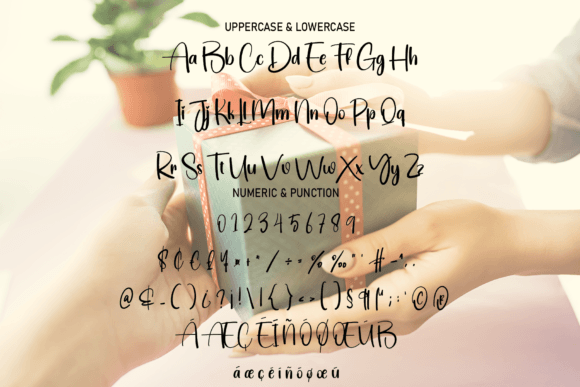 UPPERCASE & LOWERCASE
Aa Bb Cc Dd Ee Ff Gg Hh
Ii Jj Kk Ll Mm Nn Oo Pp Qq
Rr Ss Tt Uu Vv Ww Xx Yy Zz
NUMERIC & PUNCTION
0 1 2 3 4 5 6 7 8 9
$ ¢ € £ ¥ * + / ÷ = % ‰ " ' # - .
@ & - ( ) ¿ ? ¡ ! \ | { } < > [ ] § ¶ ; : ' © ®
Á Æ Ç É Í Ñ Ó Ø Œ Ú ß
á æ ç é í ñ ó ø œ ú